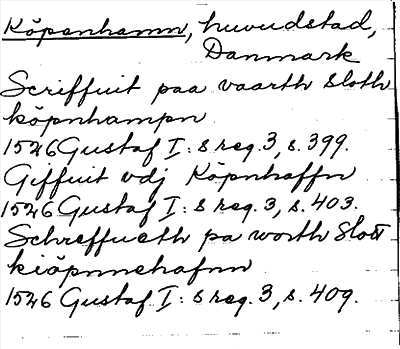 Köpenhamn, huvudstad,
Danmark
Scriffuit paa vaarth sloth
köpnhampn
1526 Gustaf I: s reg. 3, s. 399.
Giffuit vdj Köpnhaffn
1526 Gustaf I: s reg. 3, s. 403.
Schreffueth pa worth Slott
kiöpnnehafnn
1526 Gustaf I: s reg. 3, s. 409.